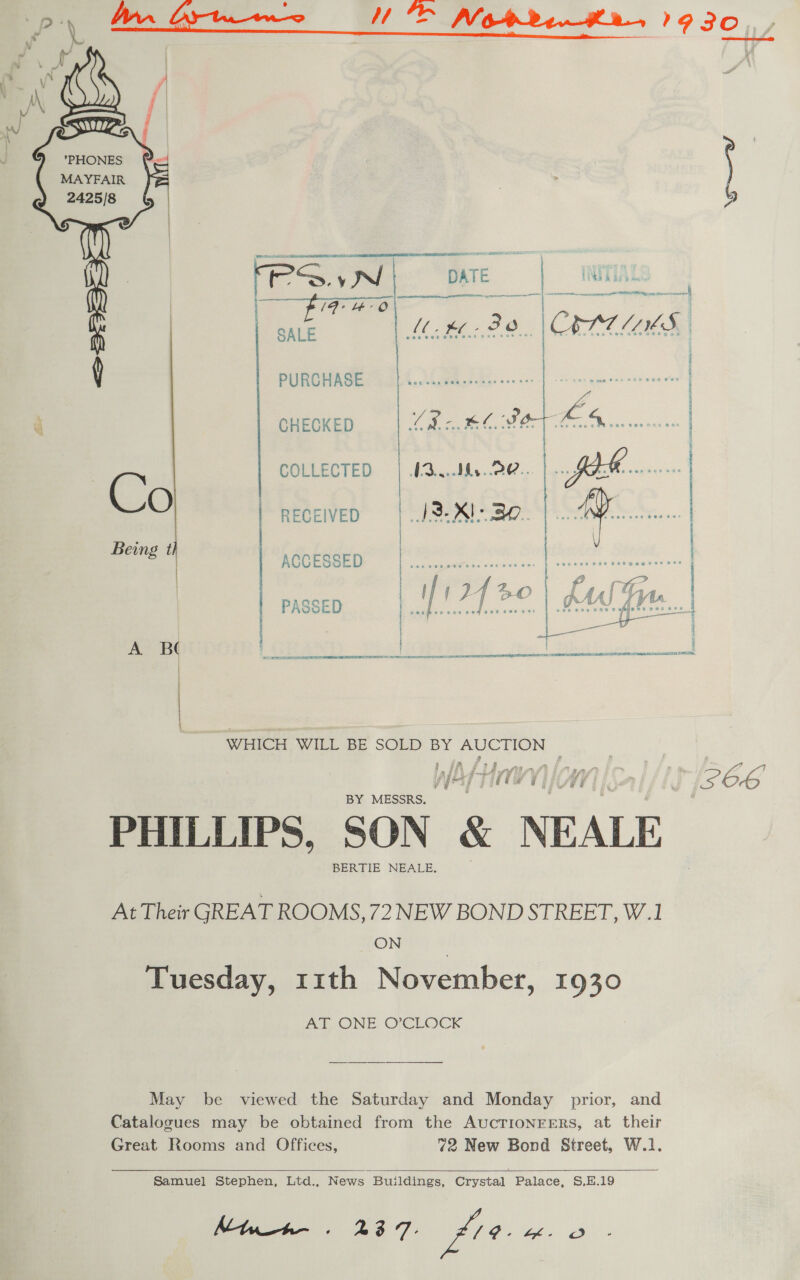 11th November 1930
'PHONES
MAYFAIR
2425/8
SALE
NUMBER
P.S.&N
DATE
INITIALS
£19-4-0
SALE
11.XI.30
PURCHASE
CHECKED
COLLECTED
RECEIVED
13.XI.30
ACCESSED
PASSED
Co
Being th
A BO
WHICH WILL BE SOLD BY AUCTION
266
BY MESSRS.
PHILLIPS, SON & NEALE
BERTIE NEALE.
At Their GREAT ROOMS, 72 NEW BOND STREET, W.1
ON
Tuesday, 11th November, 1930
AT ONE O'CLOCK
May be viewed the Saturday and Monday prior, and
Catalogues may be obtained from the AUCTIONEERS, at their
Great Rooms and Offices, 72 New Bond Street, W.1.
Samuel Stephen, Ltd., News Buildings, Crystal Palace, S.E.19
237. £19. 4. 0.